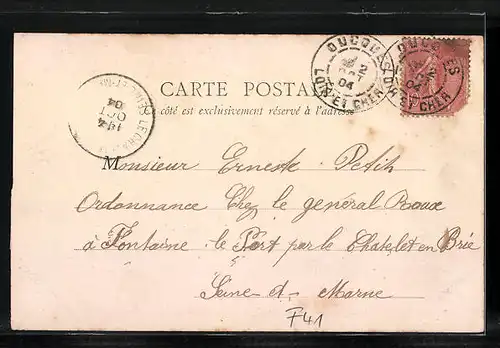 OUCOUES
LOIR ET CHER
04
OUCOUES
LOIR ET CHER
CARTE POSTALE
côté est exclusivement réservé à l'adresse
LE CHA
OCT
04
Monsieur Ernest Petit
Ordonnance Chez le général Roux
à Fontaine-le-Port par le Chatelet en Brie
Seine-et-Marne
F41